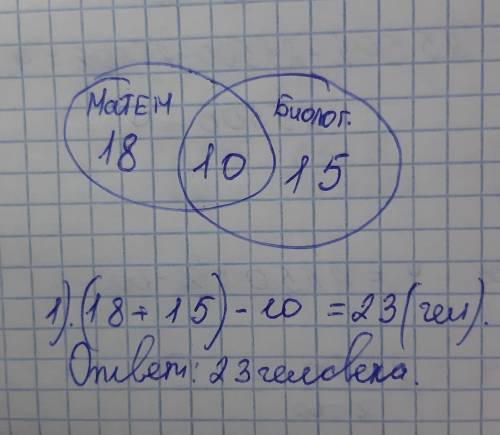 МАТЕМ
БИОЛОГ.
18
10
15
1).(18+15)-10=23(чел).
Ответ: 23 человека.